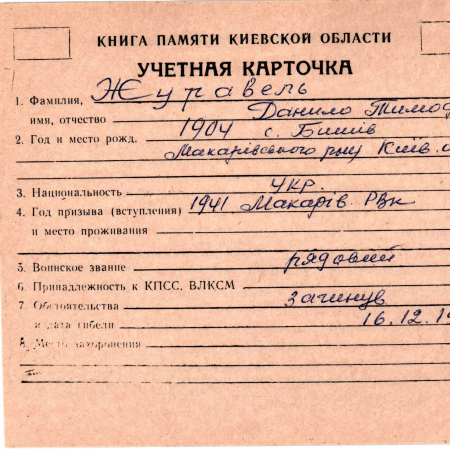 КНИГА ПАМЯТИ КИЕВСКОЙ ОБЛАСТИ
УЧЕТНАЯ КАРТОЧКА
1. Фамилия, Журавель
имя, отчество Данило Тимоф
2. Год и место рожд. 1904 с. Бишів
Макарівського р-ну Київ. о
3. Национальность укр.
4. Год призыва (вступления) 1941 Макарів. РВК
и место проживания
5. Воинское звание рядовий
6. Принадлежность к КПСС, ВЛКСМ
7. Обстоятельства загинув
и дата гибели 16.12.19
8. Место захоронения